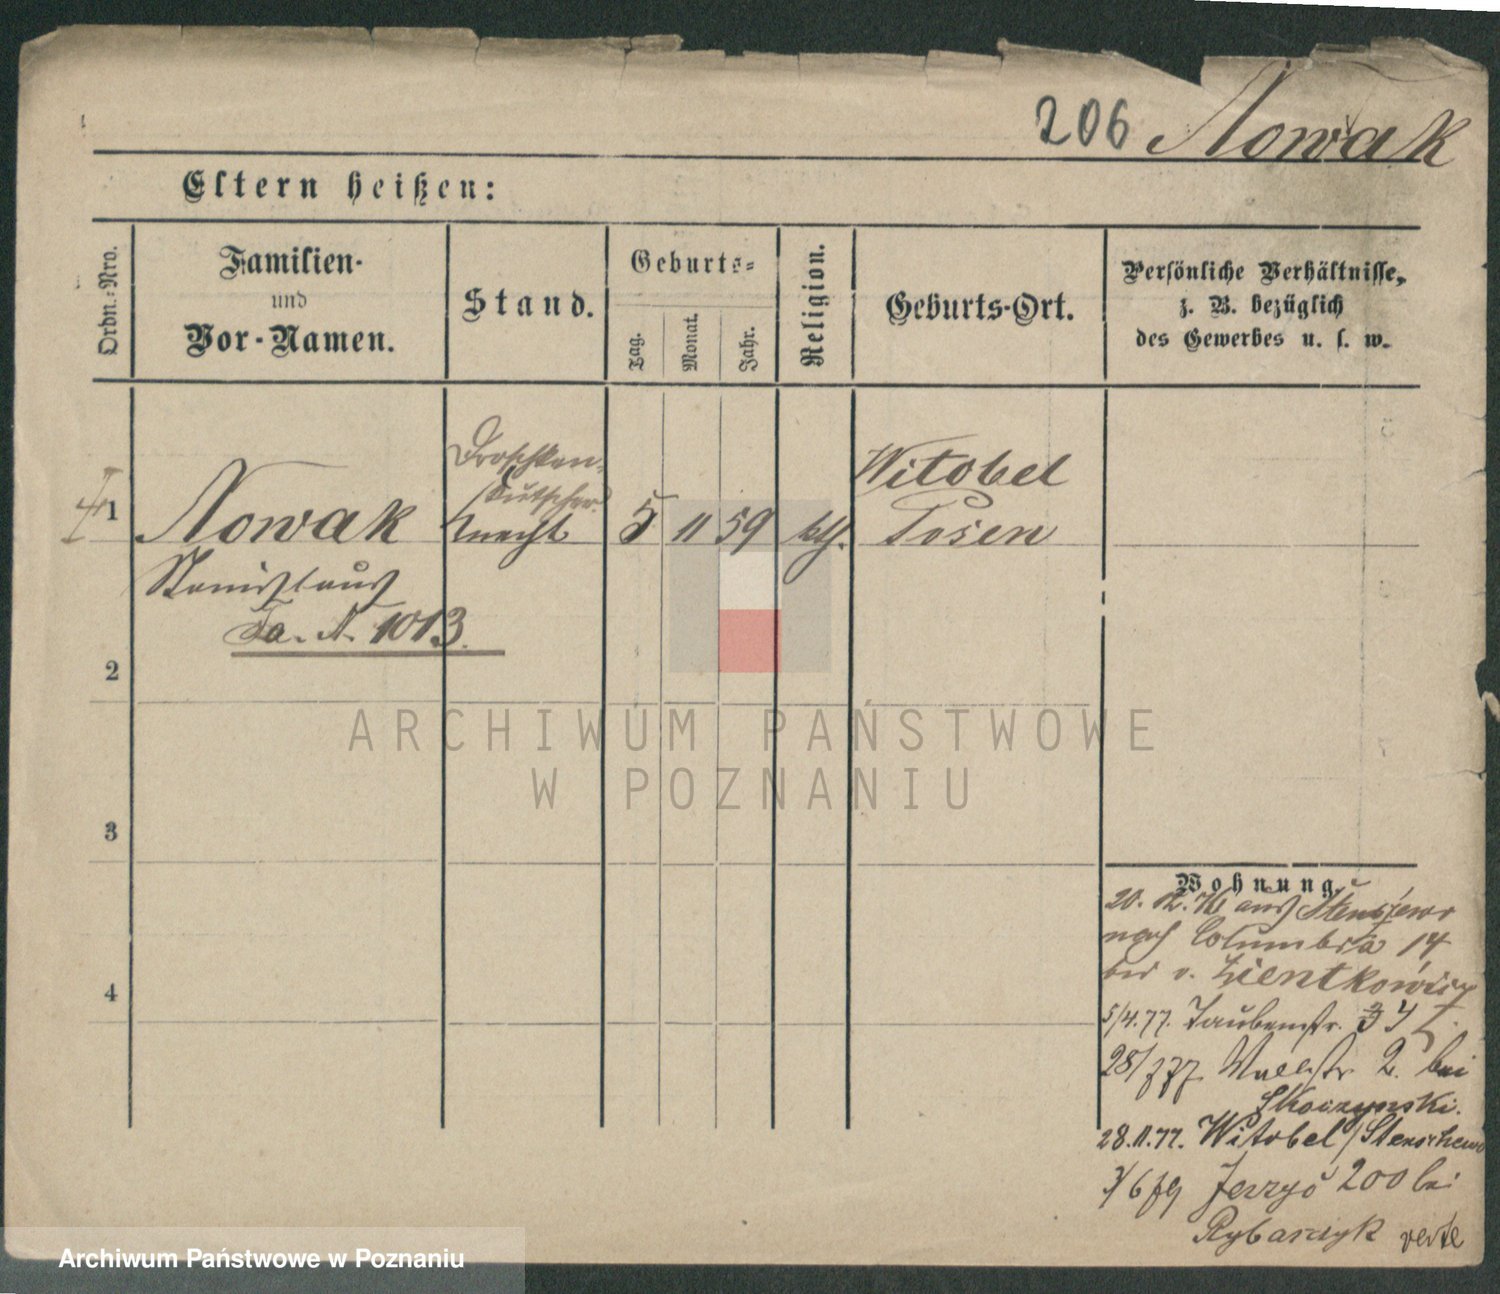 206 Nowak
Eltern heißen:
Ordn.-Nro.
Familien-
und
Vor-Namen.
Stand.
Geburts-
Tag.
Monat.
Jahr.
Religion.
Geburts-Ort.
Persönliche Verhältnisse,
z. B. bezüglich
des Gewerbes u. s. w.
1
Nowak
Stanislaus
Fa. N. 1013.
Droschken-
Kutscher
Knecht
5
11
59
kth.
Witobel
Posen
2
3
4
ARCHIWUM PAŃSTWOWE
W POZNANIU
Wohnung.
20. 12. 76 aus Stenszewo
nach Columbia 14
bei v. Zientkowicz
5/4. 77. Taubenstr. 3
28/7 77 Wallstr 2. bei
Skoczynski.
28.11.77. Witobel / Stenschewo
3/6 79 Jerzyc 200 bei
Rybarczyk verte
Archiwum Państwowe w Poznaniu